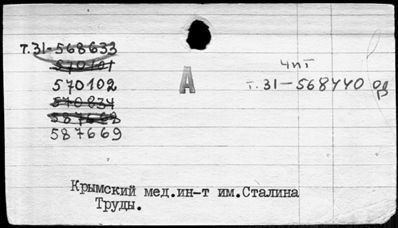 т.31-568633
570101
570102
570834
587668
587669
А
чит
т.31-568440
Крымский мед.ин-т им.Сталина
Труды.